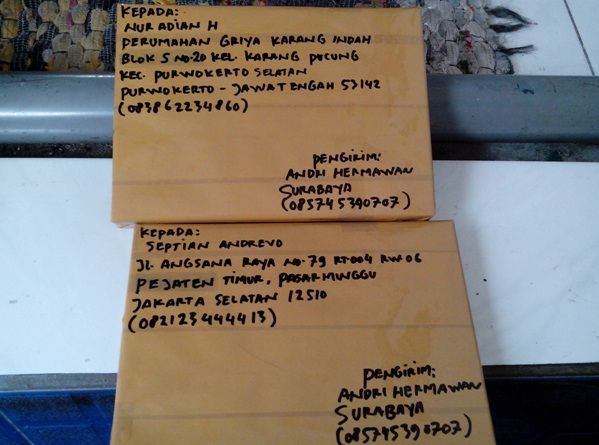 KEPADA:
NUR ADIAN H
PERUMAHAN GRIYA KARANG INDAH
BLOK S NO.20 KEL. KARANG PUCUNG
KEC. PURWOKERTO SELATAN
PURWOKERTO - JAWA TENGAH 53142
(083862234860)
PENGIRIM:
ANDRI HERMAWAN
SURABAYA
(085745390707)
KEPADA:
SEPTIAN ANDREVO
JL. ANGSANA RAYA NO.79 RT004 RW06
PEJATEN TIMUR, PASAR MINGGU
JAKARTA SELATAN 12510
(082123444413)
PENGIRIM:
ANDRI HERMAWAN
SURABAYA
(085745390707)